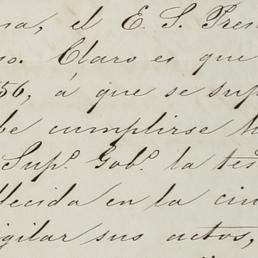 na, el E. S. Pres
so. Claro es que
56, á que se sup
be cumplirse
Sup.º Gob.º la tes
lecida en la cir
igilar sus actos,